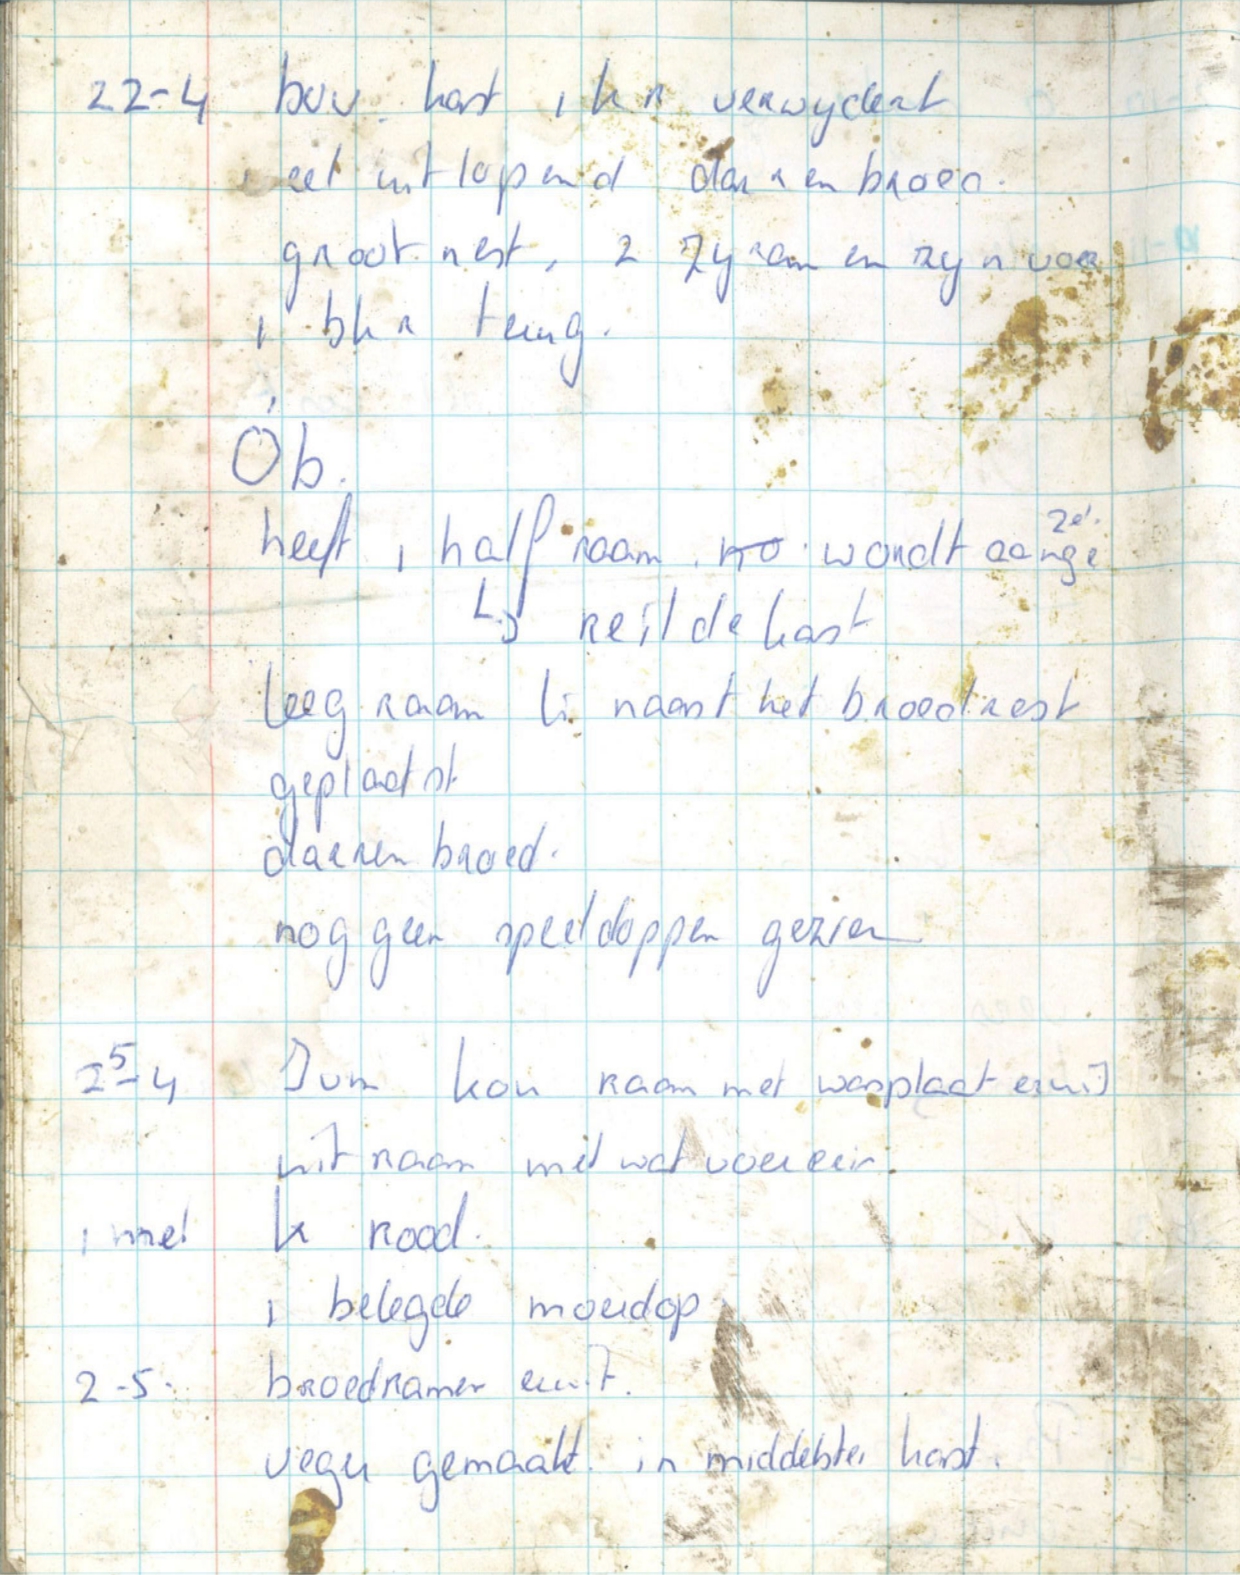 22-4 bov. kast 1 hk verwydert
eet uitlopend darrenbroed.
groot nest, 2 zyramen zyn voer
1 bkr terug.
Ób.
heeft 1 half raam wordt aange zé.
↳ reilde kast
leeg raam li naast het broednest
geplaatst
darrenbroed.
nog geen speeldoppen gezien
25-4 kou raam met wasplaat eruit
uit raam met wat voer erin.
1 mei k rood.
1 belegde moerdop
2-5. broedramen eruit.
veger gemaakt. in middelste kast.